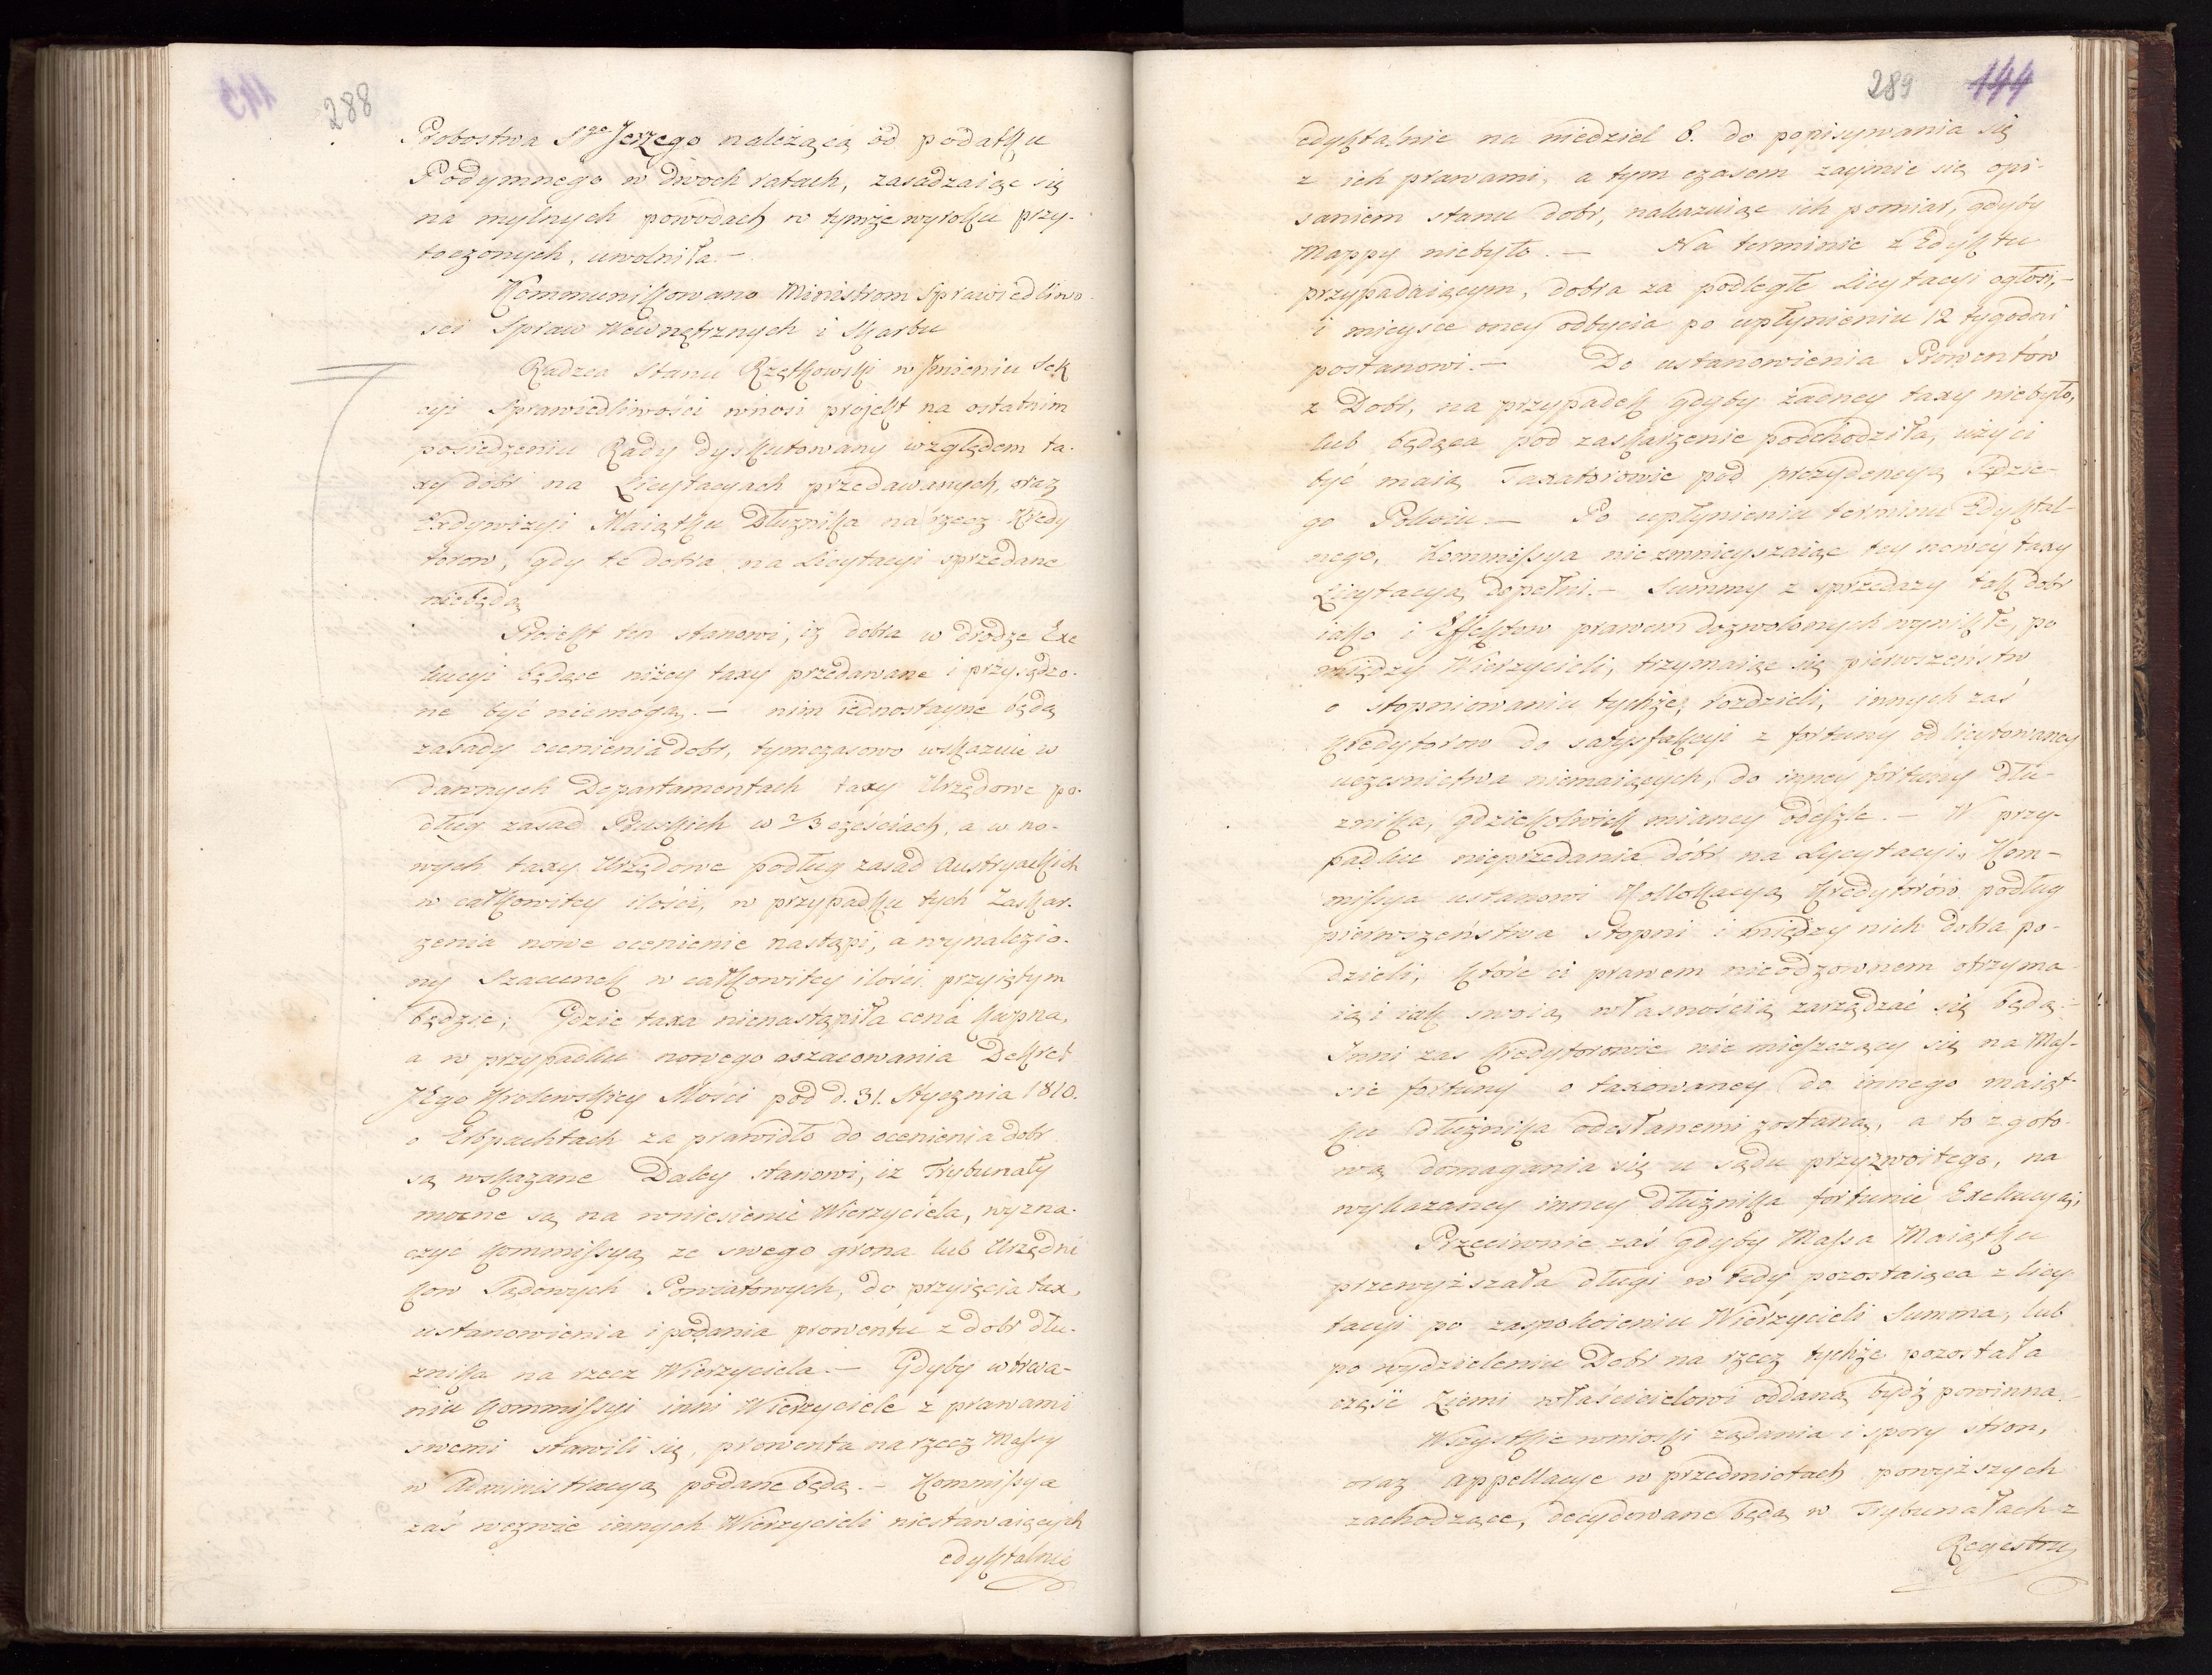 288
Probostwa Sgo Jerzego należącą od podatku
Podymnego w dwoch ratach, zasadzaiąc się
na mylnych powodach w tymże wyroku przy-
toczonych, uwolniła.—
Kommunikowano Ministrom Sprawiedliwo-
sci Spraw Wewnętrznych i Skarbu
Radzca Stanu Rzętkowski w Jmieniu Sek
cyi Sprawiedliwości wnosi projekt na ostatnim
posiedzeniu Rady dyskutowany względem ta-
xy dóbr na Licytacyach przedawanych, oraz
Exdywizyi Maiątku Dłuznika na rzecz Kredy
torow, gdy te dobra na Licytacyi sprzedane
niebędą
Projekt ten stanowi, iz dobra w drodze Exe
kucyi będące niżey taxy przedawane i przysądzo-
ne być niemogą.— nim iednostayne będą
zasady ocenienia dobr, tymczasowo wskazuie w
dawnych Departamentach taxy Urzędowe po-
dług zasad Pruskich w 2/3 częściach, a w no-
wych taxy Urzędowe podług zasad Austryackich
w całkowitey ilości, w przypadku tych Zaskar-
zenia nowe ocenienie nastąpi, a wynalezio-
ny Szacunek w całkowitey ilości przyiętym
będzie; Gdzie taxa nienastąpiła cena kupna,
a w przypadku nowego oszacowania Dekret
JEgo Krolewskiey Mości pod d. 31. Stycznia 1810.
o Erbpachtach za prawidło do ocenienia dobr
są wskazane Daley stanowi, iz Trybunały
mocne są na wniesienie Wierzyciela, wyzna-
czyć Kommissyą ze swego grona lub Urzędni
kow Sądowych Powiatowych, do przyięcia tax,
ustanowienia i podania prowentu z dobr dłu-
znika na rzecz Wierzyciela.— Gdyby w trwa-
niu Kommissyi inni Wierzyciele z prawami
swemi stawili się, prowenta na rzecz Massy
w Administracyą podane będą.— Kommissya
zaś wezwie innych Wierzycieli niestawaiących
edyktalnie
289 144
edyktalnie na niedziel 6. do popisywania się
z ich prawami, a tym czasem zaymie się opi-
saniem stanu dobr, nakazuiąc ich pomiar, gdyby
Mappy niebyło.— Na terminie z Edyktu
przypadaiącym, dobra za podległe Licytacyi ogłosi,-
i mieysce oney odbycia po upłynieniu 12 tygodni
postanowi.— Do ustanowienia Prowentów
z Dobr, na przypadek gdyby żadney taxy niebyło,
lub będąca pod zaskarzenie podchodziła, użyci
być maią Taxatorowie pod prezydencyą Sędzie-
go Pokoiu— Po upłynieniu terminu Edyktal-
nego, Kommissya nie zmnieyszaiąc tey nowey taxy
Licytacyą dopełni.— Summy z sprzedazy tak dobr
iako i Effektow prawem dozwolonych wynikłe, po
między Wierzycieli, trzymaiąc się pierwszeństw
o stopniowaniu tychże, rozdzieli, innych zaś
Kredytorow do satysfakcyi z fortuny odlicytowaney
uczesnictwa niemaiących, do inney fortuny dłu-
znika, gdziekolwiek mianey odeszle.— W przy-
padku nieprzedania dóbr na Lycytacyi, Kom-
missya ustanowi Kollokacyą Kredytorów podług
pierwszeństwa stopni i między nich dobra po-
dzieli, które ci prawem nieodzownem otrzyma-
ią i iak swoią własnością zarządzać się będą.—
Inni zas kredytorowie nie mieszczący się na Mas-
sie fortuny o taxowaney do innego maiąt-
ku dłużnika odesłanemi zostaną, a to z goto-
wą domagania się u sądu przyzwoitego, na
wykazaney inney dłużnika fortunie Exekucyą;
Przeciwnie zaś gdyby Massa Maiątku
przewyższała długi w tedy pozostaiąca z licy-
tacyi po zaspokoieniu Wierzycieli Summa, lub
po wydzieleniu Dobr na rzecz tychże pozostała
część Ziemi właścicielowi oddaną bydź powinna.
Wszystkie wnioski ządania i spory stron,
oraz appellacye w przedmiotach powyższych
zachodzące, decydowane będą w Trybunałach z
Regestru